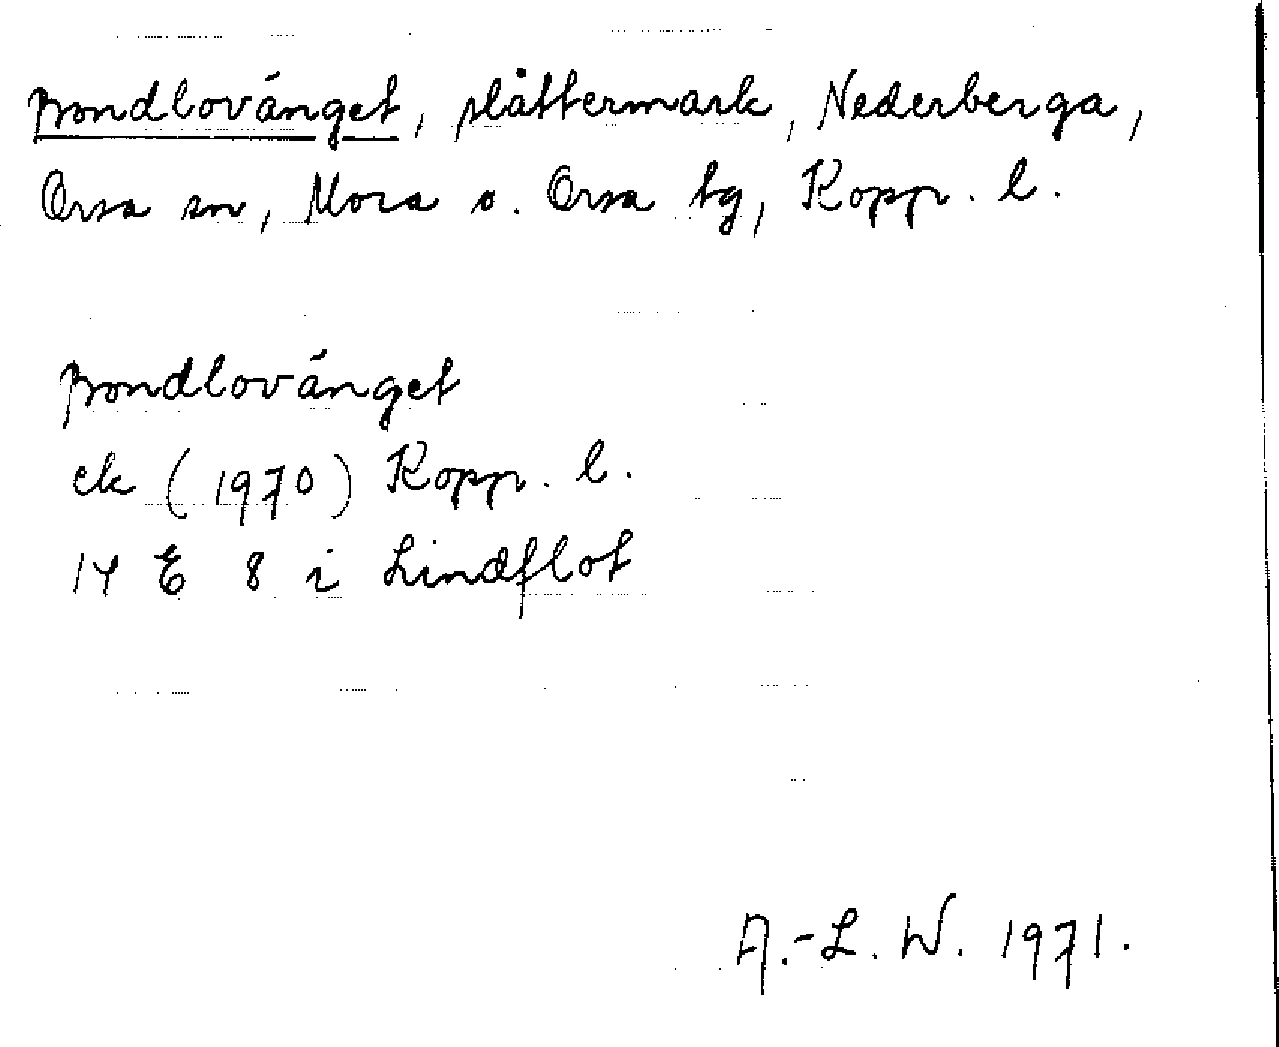 Bondlovänget, slåttermark, Nederberga,
Orsa sn, Mora o. Orsa tg, Kopp. l.
Bondlovänget
ek (1970) Kopp. l.
14 E 8 i Lindflot
A.-L. W. 1971.